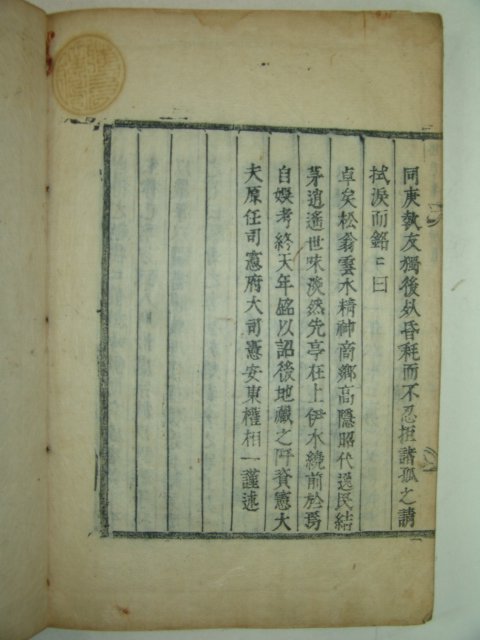 同庚執友獨後奴昏耗而不忍拒諸孤之請
拭淚而銘ミ曰
卓矣松翁雲水精神商鄉高隱昭代逸民結
茅逍遙世味淡然先亭在上伊水繞前於焉
自娛考終天年銘以詔後地藏之阡資憲大
夫原任司憲府大司憲安東權相一謹述